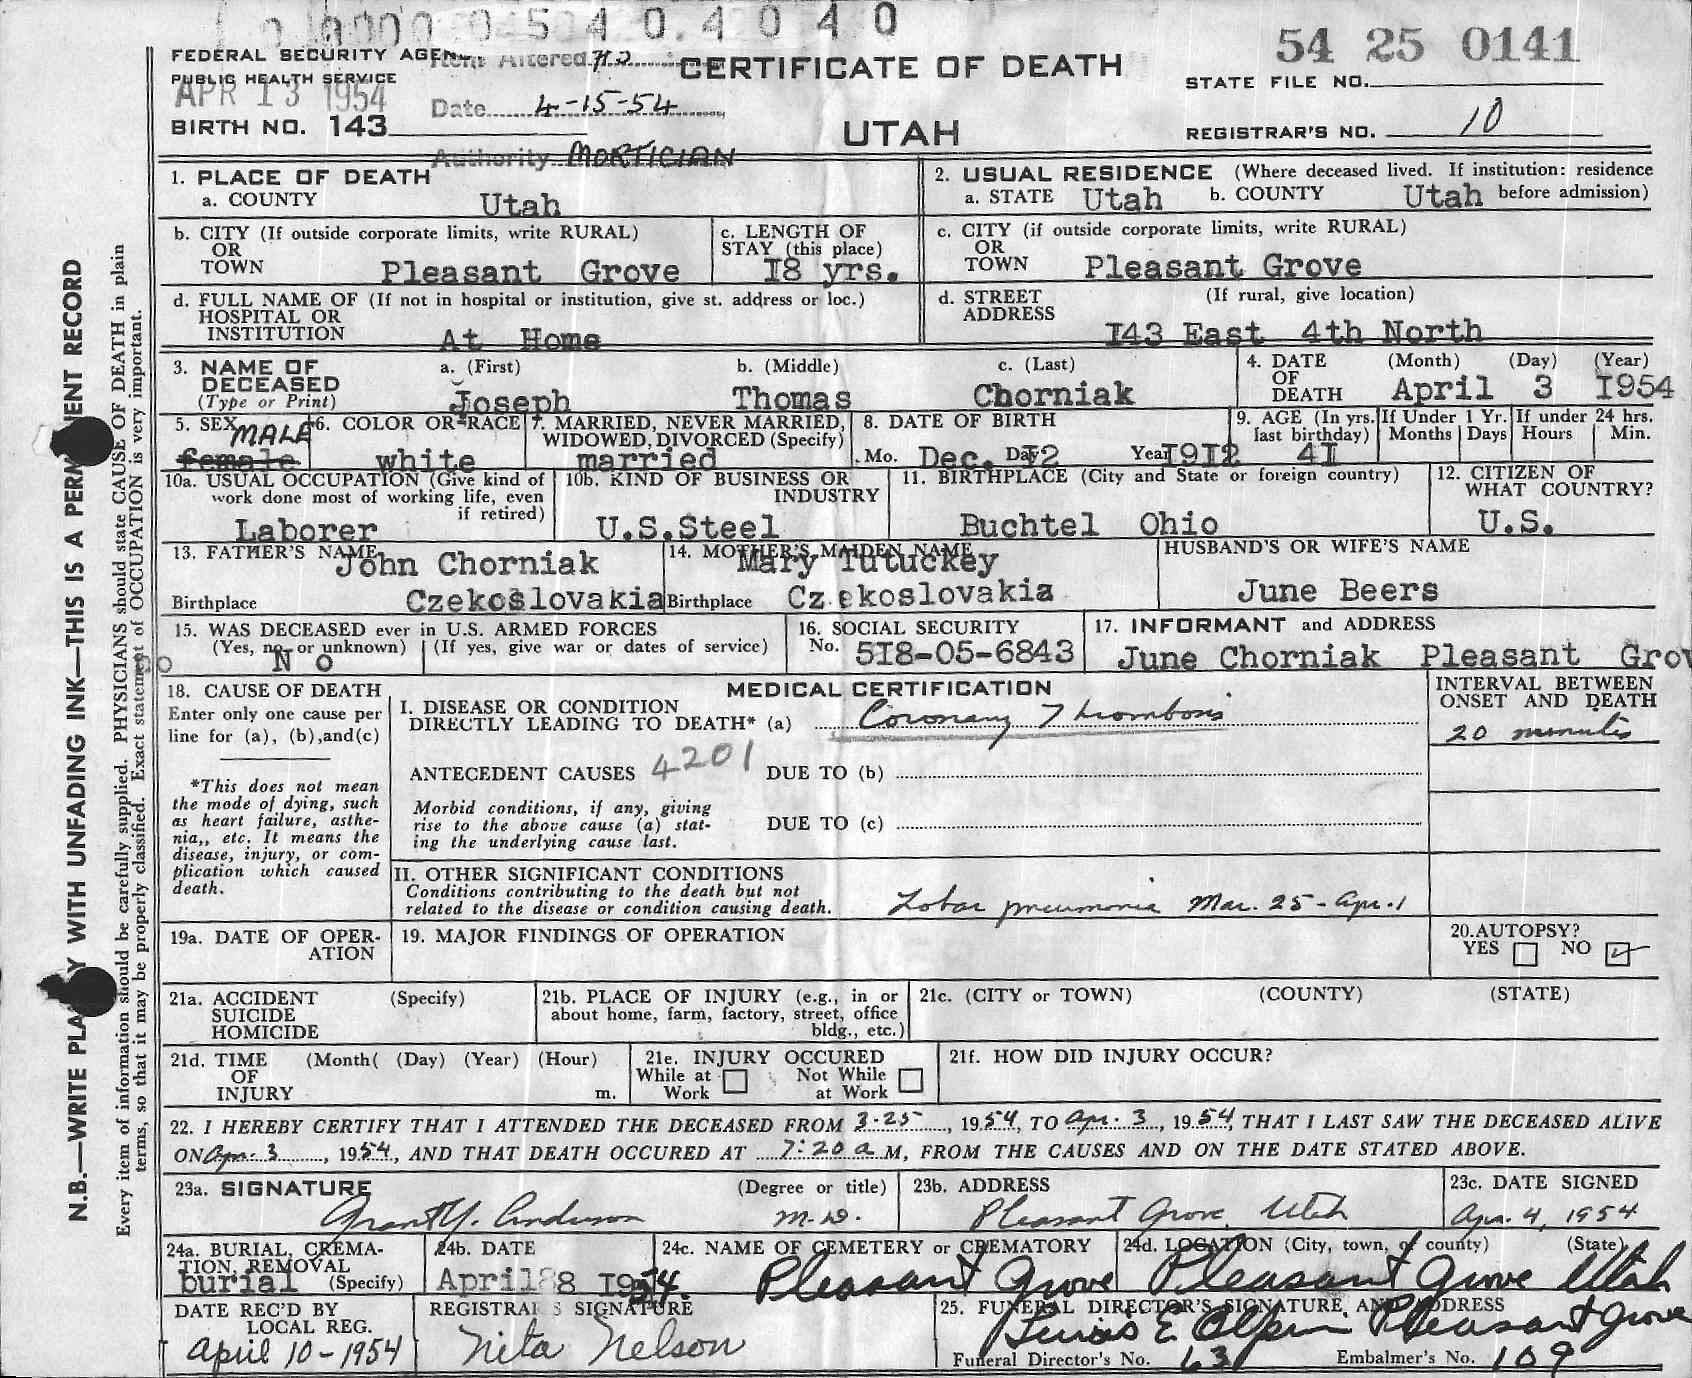 0000 0 5 4 0 . 4 0 4 0
54 25 0141
FEDERAL SECURITY AGEN
Item Altered #2
CERTIFICATE OF DEATH
STATE FILE NO.
PUBLIC HEALTH SERVICE
APR 13 1954
Date 4-15-54
BIRTH NO. 143
UTAH
REGISTRAR'S NO. 10
Authority MORTICIAN
1. PLACE OF DEATH
a. COUNTY Utah
2. USUAL RESIDENCE (Where deceased lived. If institution: residence
a. STATE Utah b. COUNTY Utah before admission)
b. CITY (If outside corporate limits, write RURAL)
OR
TOWN Pleasant Grove
c. LENGTH OF
STAY (this place)
I8 yrs.
c. CITY (if outside corporate limits, write RURAL)
OR
TOWN Pleasant Grove
d. FULL NAME OF (If not in hospital or institution, give st. address or loc.)
HOSPITAL OR
INSTITUTION At Home
d. STREET (If rural, give location)
ADDRESS
I43 East 4th North
3. NAME OF a. (First) b. (Middle) c. (Last)
DECEASED
(Type or Print) Joseph Thomas Chorniak
4. DATE (Month) (Day) (Year)
OF
DEATH April 3 I954
5. SEX MALE
female
6. COLOR OR RACE
white
7. MARRIED, NEVER MARRIED,
WIDOWED, DIVORCED (Specify)
married
8. DATE OF BIRTH
Mo. Dec. Day I2 Year I9I2
9. AGE (In yrs.
last birthday)
4I
If Under 1 Yr.
Months Days
If under 24 hrs.
Hours Min.
10a. USUAL OCCUPATION (Give kind of
work done most of working life, even
if retired)
Laborer
10b. KIND OF BUSINESS OR
INDUSTRY
U.S.Steel
11. BIRTHPLACE (City and State or foreign country)
Buchtel Ohio
12. CITIZEN OF
WHAT COUNTRY?
U.S.
13. FATHER'S NAME
John Chorniak
Birthplace Czekoslovakia
14. MOTHER'S MAIDEN NAME
Mary Tutuckey
Birthplace Czekoslovakia
HUSBAND'S OR WIFE'S NAME
June Beers
15. WAS DECEASED ever in U.S. ARMED FORCES
(Yes, no, or unknown) (If yes, give war or dates of service)
N o
16. SOCIAL SECURITY
No. 5I8-05-6843
17. INFORMANT and ADDRESS
June Chorniak Pleasant Grov
18. CAUSE OF DEATH
Enter only one cause per
line for (a), (b),and(c)
*This does not mean
the mode of dying, such
as heart failure, asthe-
nia,, etc. It means the
disease, injury, or com-
plication which caused
death.
MEDICAL CERTIFICATION
I. DISEASE OR CONDITION
DIRECTLY LEADING TO DEATH* (a) Coronary Thrombosis
INTERVAL BETWEEN
ONSET AND DEATH
20 minutes
ANTECEDENT CAUSES 4201 DUE TO (b)
Morbid conditions, if any, giving
rise to the above cause (a) stat-
ing the underlying cause last.
DUE TO (c)
II. OTHER SIGNIFICANT CONDITIONS
Conditions contributing to the death but not
related to the disease or condition causing death.
Lobar pneumonia Mar. 25 - Apr. 1
19a. DATE OF OPER-
ATION
19. MAJOR FINDINGS OF OPERATION
20.AUTOPSY?
YES NO
21a. ACCIDENT (Specify)
SUICIDE
HOMICIDE
21b. PLACE OF INJURY (e.g., in or
about home, farm, factory, street, office
bldg., etc.)
21c. (CITY or TOWN) (COUNTY) (STATE)
21d. TIME (Month( (Day) (Year) (Hour)
OF
INJURY m.
21e. INJURY OCCURED
While at Not While
Work at Work
21f. HOW DID INJURY OCCUR?
22. I HEREBY CERTIFY THAT I ATTENDED THE DECEASED FROM 3-25, 1954, TO Apr. 3, 1954, THAT I LAST SAW THE DECEASED ALIVE
ON Apr. 3, 1954, AND THAT DEATH OCCURED AT 7:20 a M, FROM THE CAUSES AND ON THE DATE STATED ABOVE.
23a. SIGNATURE (Degree or title)
Grant Y. Anderson M.D.
23b. ADDRESS
Pleasant Grove, Utah
23c. DATE SIGNED
Apr. 4, 1954
24a. BURIAL, CREMA-
TION, REMOVAL
burial (Specify)
24b. DATE
April 8 1954.
24c. NAME OF CEMETERY or CREMATORY
Pleasant Grove
24d. LOCATION (City, town, or county) (State)
Pleasant Grove Utah
DATE REC'D BY
LOCAL REG.
April 10-1954
REGISTRAR'S SIGNATURE
Nita Nelson
25. FUNERAL DIRECTOR'S SIGNATURE, AND ADDRESS
E Olpin Pleasant Grove
Funeral Director's No. 63 Embalmer's No. 109
N.B.—WRITE PLAINLY WITH UNFADING INK—THIS IS A PERMANENT RECORD
Every item of information should be carefully supplied. PHYSICIANS should state CAUSE OF DEATH in plain
terms, so that it may be properly classified. Exact statement of OCCUPATION is very important.